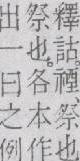 釋詁禋祭
祭也各本作
出一曰之例